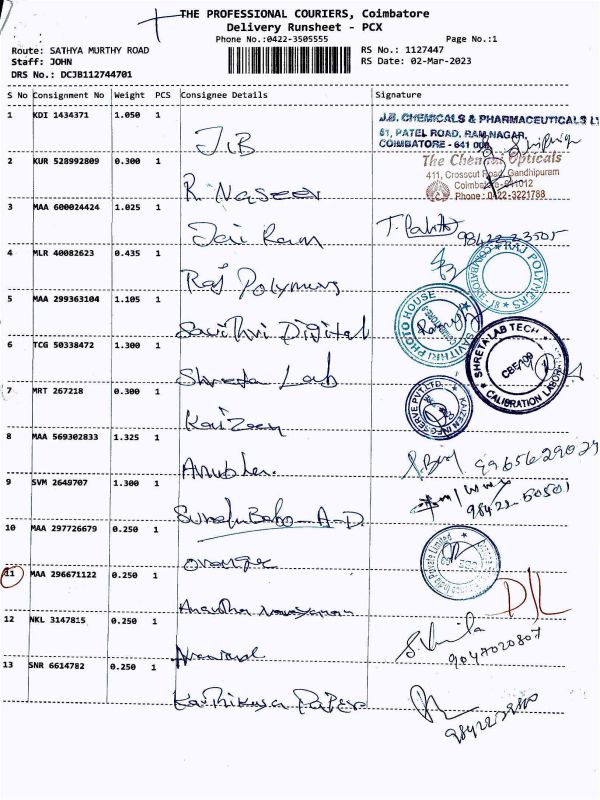 THE PROFESSIONAL COURIERS, Coimbatore
Delivery Runsheet - PCX
Phone No.:0422-3505555
Page No.:1
Route: SATHYA MURTHY ROAD
RS No.: 1127447
Staff: JOHN
RS Date: 02-Mar-2023
DRS No.: DCJB112744701
S No Consignment No Weight PCS Consignee Details Signature
1 KDI 1434371 1.050 1 J.B
J.B. CHEMICALS & PHARMACEUTICALS LT
61, PATEL ROAD, RAM NAGAR,
COIMBATORE - 641 009
2 KUR 528992809 0.300 1 R. Naseer
The Chennai Opticals
411, Crosscut Road, Gandhipuram
Coimbatore-641012
Phone: 0422-3221788
3 MAA 600024424 1.025 1 Jai Ram
4 MLR 40082623 0.435 1 Raj Polymers
RAJ POLYMERS
5 MAA 299363104 1.105 1 Savithri Digital
SAVITHRI PHOTO HOUSE
6 TCG 50338472 1.300 1 Shreta Lab
SHRETA LAB TECH
CALIBRATION LABOR
7 MRT 267218 0.300 1 Kaizeen
KAIZEN INFOSERVE PVT LTD.
8 MAA 569302833 1.325 1
9965629029
9 SVM 2649707 1.300 1 Suresh Babo A-D
98422-50501
10 MAA 297726679 0.250 1 orange
Private Limited
11 MAA 296671122 0.250 1 Anandha Narayanan
D/L
12 NKL 3147815 0.250 1
9047020807
13 SNR 6614782 0.250 1 Karthikeya Paper